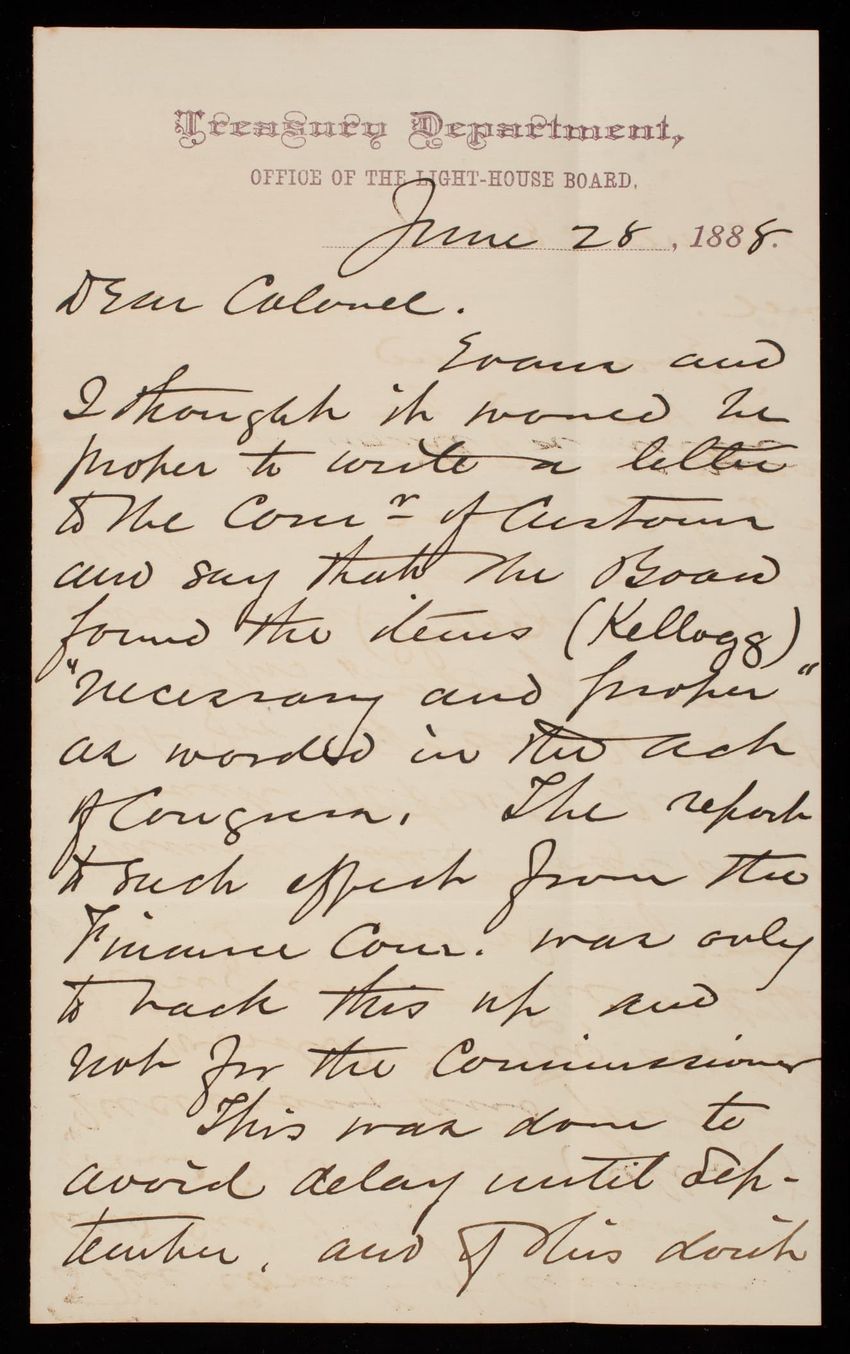 Treasury Department,
OFFICE OF THE LIGHT-HOUSE BOARD,
June 28, 1888.
Dear Colonel.
Evans and
I thought it would be
proper to write a letter
to the Comr of Customs
and say that the Board
found the items (Kellogg)
"necessary and proper"
as worded in the act
of Congress. The report
to such effect from the
Finance Com. was only
to back this up and
not for the Commissioner
This was done to
avoid delay until Sep-
tember, and if this don't